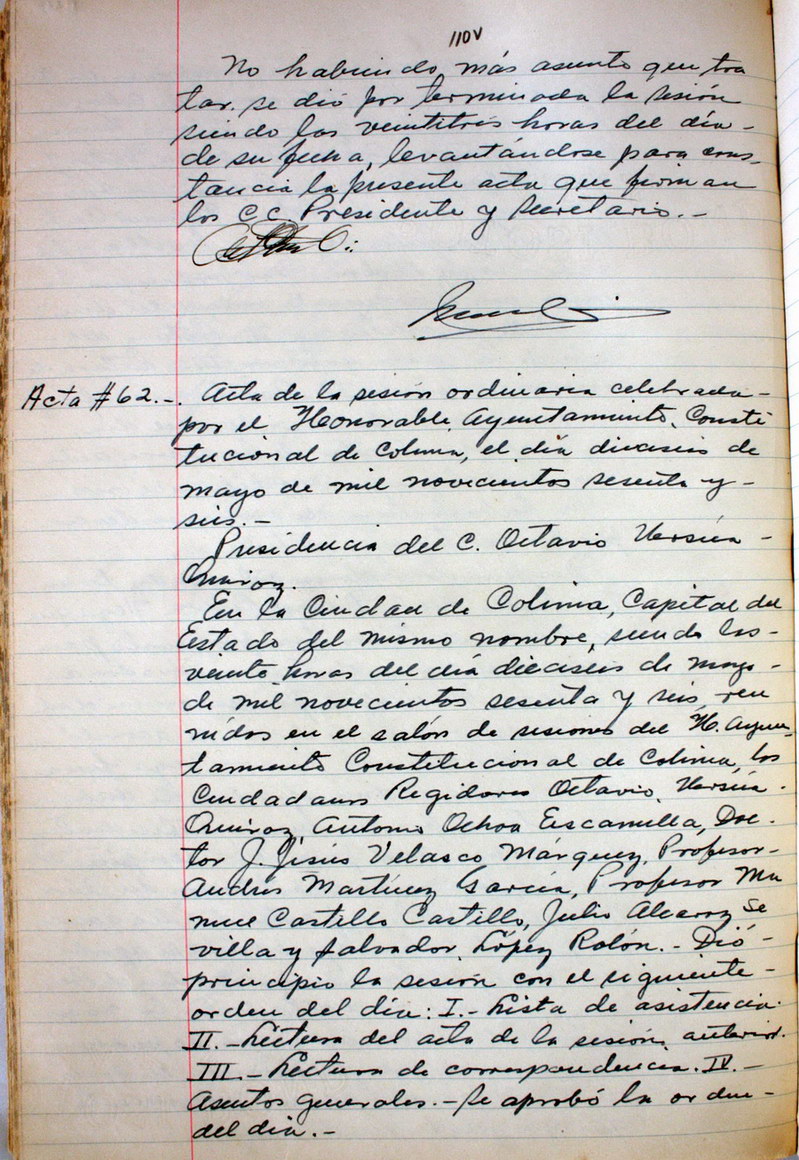 110v
No habiendo más asunto que tra
tar. se dió por terminada la sesión
siendo las veintitres horas del día -
de su fecha, levantándose para cons-
tancia la presente acta que firman
los C.C. Presidente y Secretario.-
Acta #62.-. Acta de la sesión ordinaria celebrada-
por el Honorable Ayuntamiento Consti
tucional de Colima, el día dieciseis de
mayo de mil novecientos sesenta y -
seis.-
Presidencia del C. Octavio Ursúa -
Quiroz.
En la Ciudad de Colima, Capital del
Estado del mismo nombre, siendo las-
veinte horas del día dieciseis de mayo-
de mil novecientos sesenta y seis, reu
nidos en el salón de sesiones del H. Ayun-
tamiento Constitucional de Colima, los
Ciudadanos Regidores Octavio Ursúa -
Quiroz, Antonio Ochoa Escamilla, Doc-
tor J. Jesús Velasco Márquez, Profesor-
Andrés Martínez García, Profesor Ma
nuel Castillo Castillo, Julio Alcaroz Se
villa y Salvador López Rolón.- Dió-
principio la sesión con el siguiente -
orden del día: I.- Lista de asistencia.
II.- Lectura del acta de la sesión anterior.
III.- Lectura de correspondencia. IV.-
Asuntos generales.- Se aprobó la orden-
del día.-